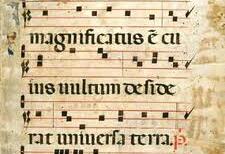 magnificatus ē cu
ius uultum deside
rat uniuersa terra. p̄